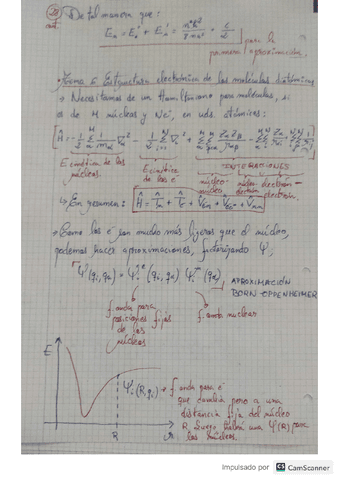 De tal manera que:
Eₙ = Eₙ° + Eₙ' = n²h²/8ma² + c/2 para la
primera aproximación.
Tema 6 Estructura electrónica de las moléculas diatómicas
→ Necesitamos de un Hamiltoniano para moléculas, si
es de M núcleos y N e⁻, en uds atómicas:
E cinética de los núcleos. E cinética de los e⁻ INTERACCIONES
núcleo-núcleo núcleo-electrón electrón-electrón
→ En resumen:
→ Como los e⁻ son mucho más ligeros que el núcleo,
podemos hacer aproximaciones, factorizando Ψ,
APROXIMACIÓN
BORN-OPPENHEIMER
f. onda para
posiciones fijas
de los
núcleos
f. onda nuclear
E
Ψᵢ(R,qᵢ) → f. onda para e⁻
que cambia pero a una
distancia fija del núcleo
R. Luego habrá una Ψ(R) para
los núcleos.
R
Impulsado por CS CamScanner